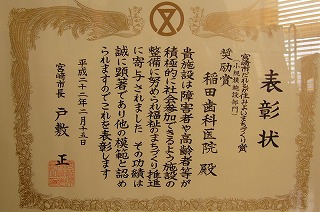 表彰状
宮崎市だれもが住みよいまちづくり賞
小規模施設部門
奨励賞
稲田歯科医院 殿
貴施設は障害者や高齢者等が
積極的に社会参加できるよう施設の
整備に努められ福祉のまちづくり推進
に寄与されました その功績は
誠に顕著であり他の模範と認め
られますのでこれを表彰します
平成二十二年二月十五日
宮崎市長 戸敷 正